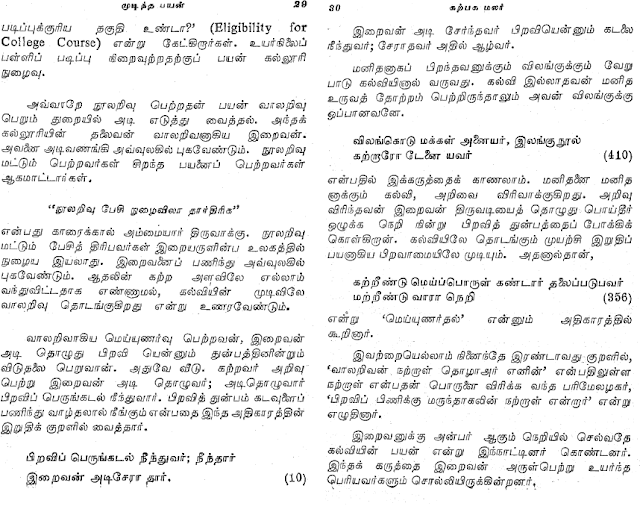 முடித்த பயன் 29
படிப்புக்குரிய தகுதி உண்டா?' (Eligibility for
College Course) என்று கேட்கிறார்கள். உயர்நிலைப்
பள்ளிப் படிப்பு நிறைவுற்றதற்குப் பயன் கல்லூரி
நுழைவு.
அவ்வாறே நூலறிவு பெற்றதன் பயன் வாலறிவு
பெறும் துறையில் அடி எடுத்து வைத்தல். அந்தக்
கல்லூரியின் தலைவன் வாலறிவனாகிய இறைவன்.
அவனை அடிவணங்கி அவ்வுலகில் புகவேண்டும். நூலறிவு
மட்டும் பெற்றவர்கள் சிறந்த பயனைப் பெற்றவர்கள்
ஆகமாட்டார்கள்.
“நூலறிவு பேசி நுழைவிலா தார்திரிக”
என்பது காரைக்கால் அம்மையார் திருவாக்கு. நூலறிவு
மட்டும் பேசித் திரிபவர்கள் இறையருளின்ப உலகத்தில்
நுழைய இயலாது. இறைவனைப் பணிந்து அவ்வுலகில்
புகவேண்டும். ஆதலின் கற்ற அளவிலே எல்லாம்
வந்துவிட்டதாக எண்ணாமல், கல்வியின் முடிவிலே
வாலறிவு தொடங்குகிறது என்று உணரவேண்டும்.
வாலறிவாகிய மெய்யுணர்வு பெற்றவன், இறைவன்
அடி தொழுது பிறவி யென்னும் துன்பத்தினின்றும்
விடுதலை பெறுவான். அதுவே வீடு. கற்றவர் அறிவு
பெற்று இறைவன் அடி தொழுவர்; அடிதொழுவார்
பிறவிப் பெருங்கடல் நீந்துவார். பிறவித் துன்பம் கடவுளைப்
பணிந்து வாழ்தலால் நீங்கும் என்பதை இந்த அதிகாரத்தின்
இறுதிக் குறளில் வைத்தார்.
பிறவிப் பெருங்கடல் நீந்துவர்; நீந்தார்
இறைவன் அடிசேரா தார். (10)
30 கற்பக மலர்
இறைவன் அடி சேர்ந்தவர் பிறவியென்னும் கடலை
நீந்துவர்; சேராதவர் அதில் ஆழ்வர்.
மனிதனாகப் பிறந்தவனுக்கும் விலங்குக்கும் வேறு
பாடு கல்வியினால் வருவது. கல்வி இல்லாதவன் மனித
உருவத் தோற்றம் பெற்றிருந்தாலும் அவன் விலங்குக்கு
ஒப்பானவனே.
விலங்கொடு மக்கள் அனையர், இலங்குநூல்
கற்றாரோ டேனை யவர் (410)
என்பதில் இக்கருத்தைக் காணலாம். மனிதனை மனித
னாக்கும் கல்வி, அறிவை விரிவாக்குகிறது. அறிவு
விரிந்தவன் இறைவன் திருவடியைத் தொழுது பொய்தீர்
ஒழுக்க நெறி நின்று பிறவித் துன்பத்தைப் போக்கிக்
கொள்கிறான். கல்வியிலே தொடங்கும் முயற்சி இறுதிப்
பயனாகிய பிறவாமையிலே முடியும். அதனால்தான்,
கற்றீண்டு மெய்ப்பொருள் கண்டார் தலைப்படுபவர்
மற்றீண்டு வாரா நெறி (356)
என்று ‘மெய்யுணர்தல்’ என்னும் அதிகாரத்தில்
கூறினார்.
இவற்றையெல்லாம் நினைந்தே இரண்டாவது குறளில்,
‘வாலறிவன் நற்றாள் தொழாஅர் எனின்’ என்பதிலுள்ள
நற்றாள் என்பதன் பொருளை விரிக்க வந்த பரிமேலழகர்,
‘பிறவிப் பிணிக்கு மருந்தாகலின் நற்றாள் என்றார்’ என்று
எழுதினார்.
இறைவனுக்கு அன்பர் ஆகும் நெறியில் செல்வதே
கல்வியின் பயன் என்று இந்நாட்டினர் கொண்டனர்.
இந்தக் கருத்தை இறைவன் அருள்பெற்று உயர்ந்த
பெரியவர்களும் சொல்லியிருக்கின்றனர்.